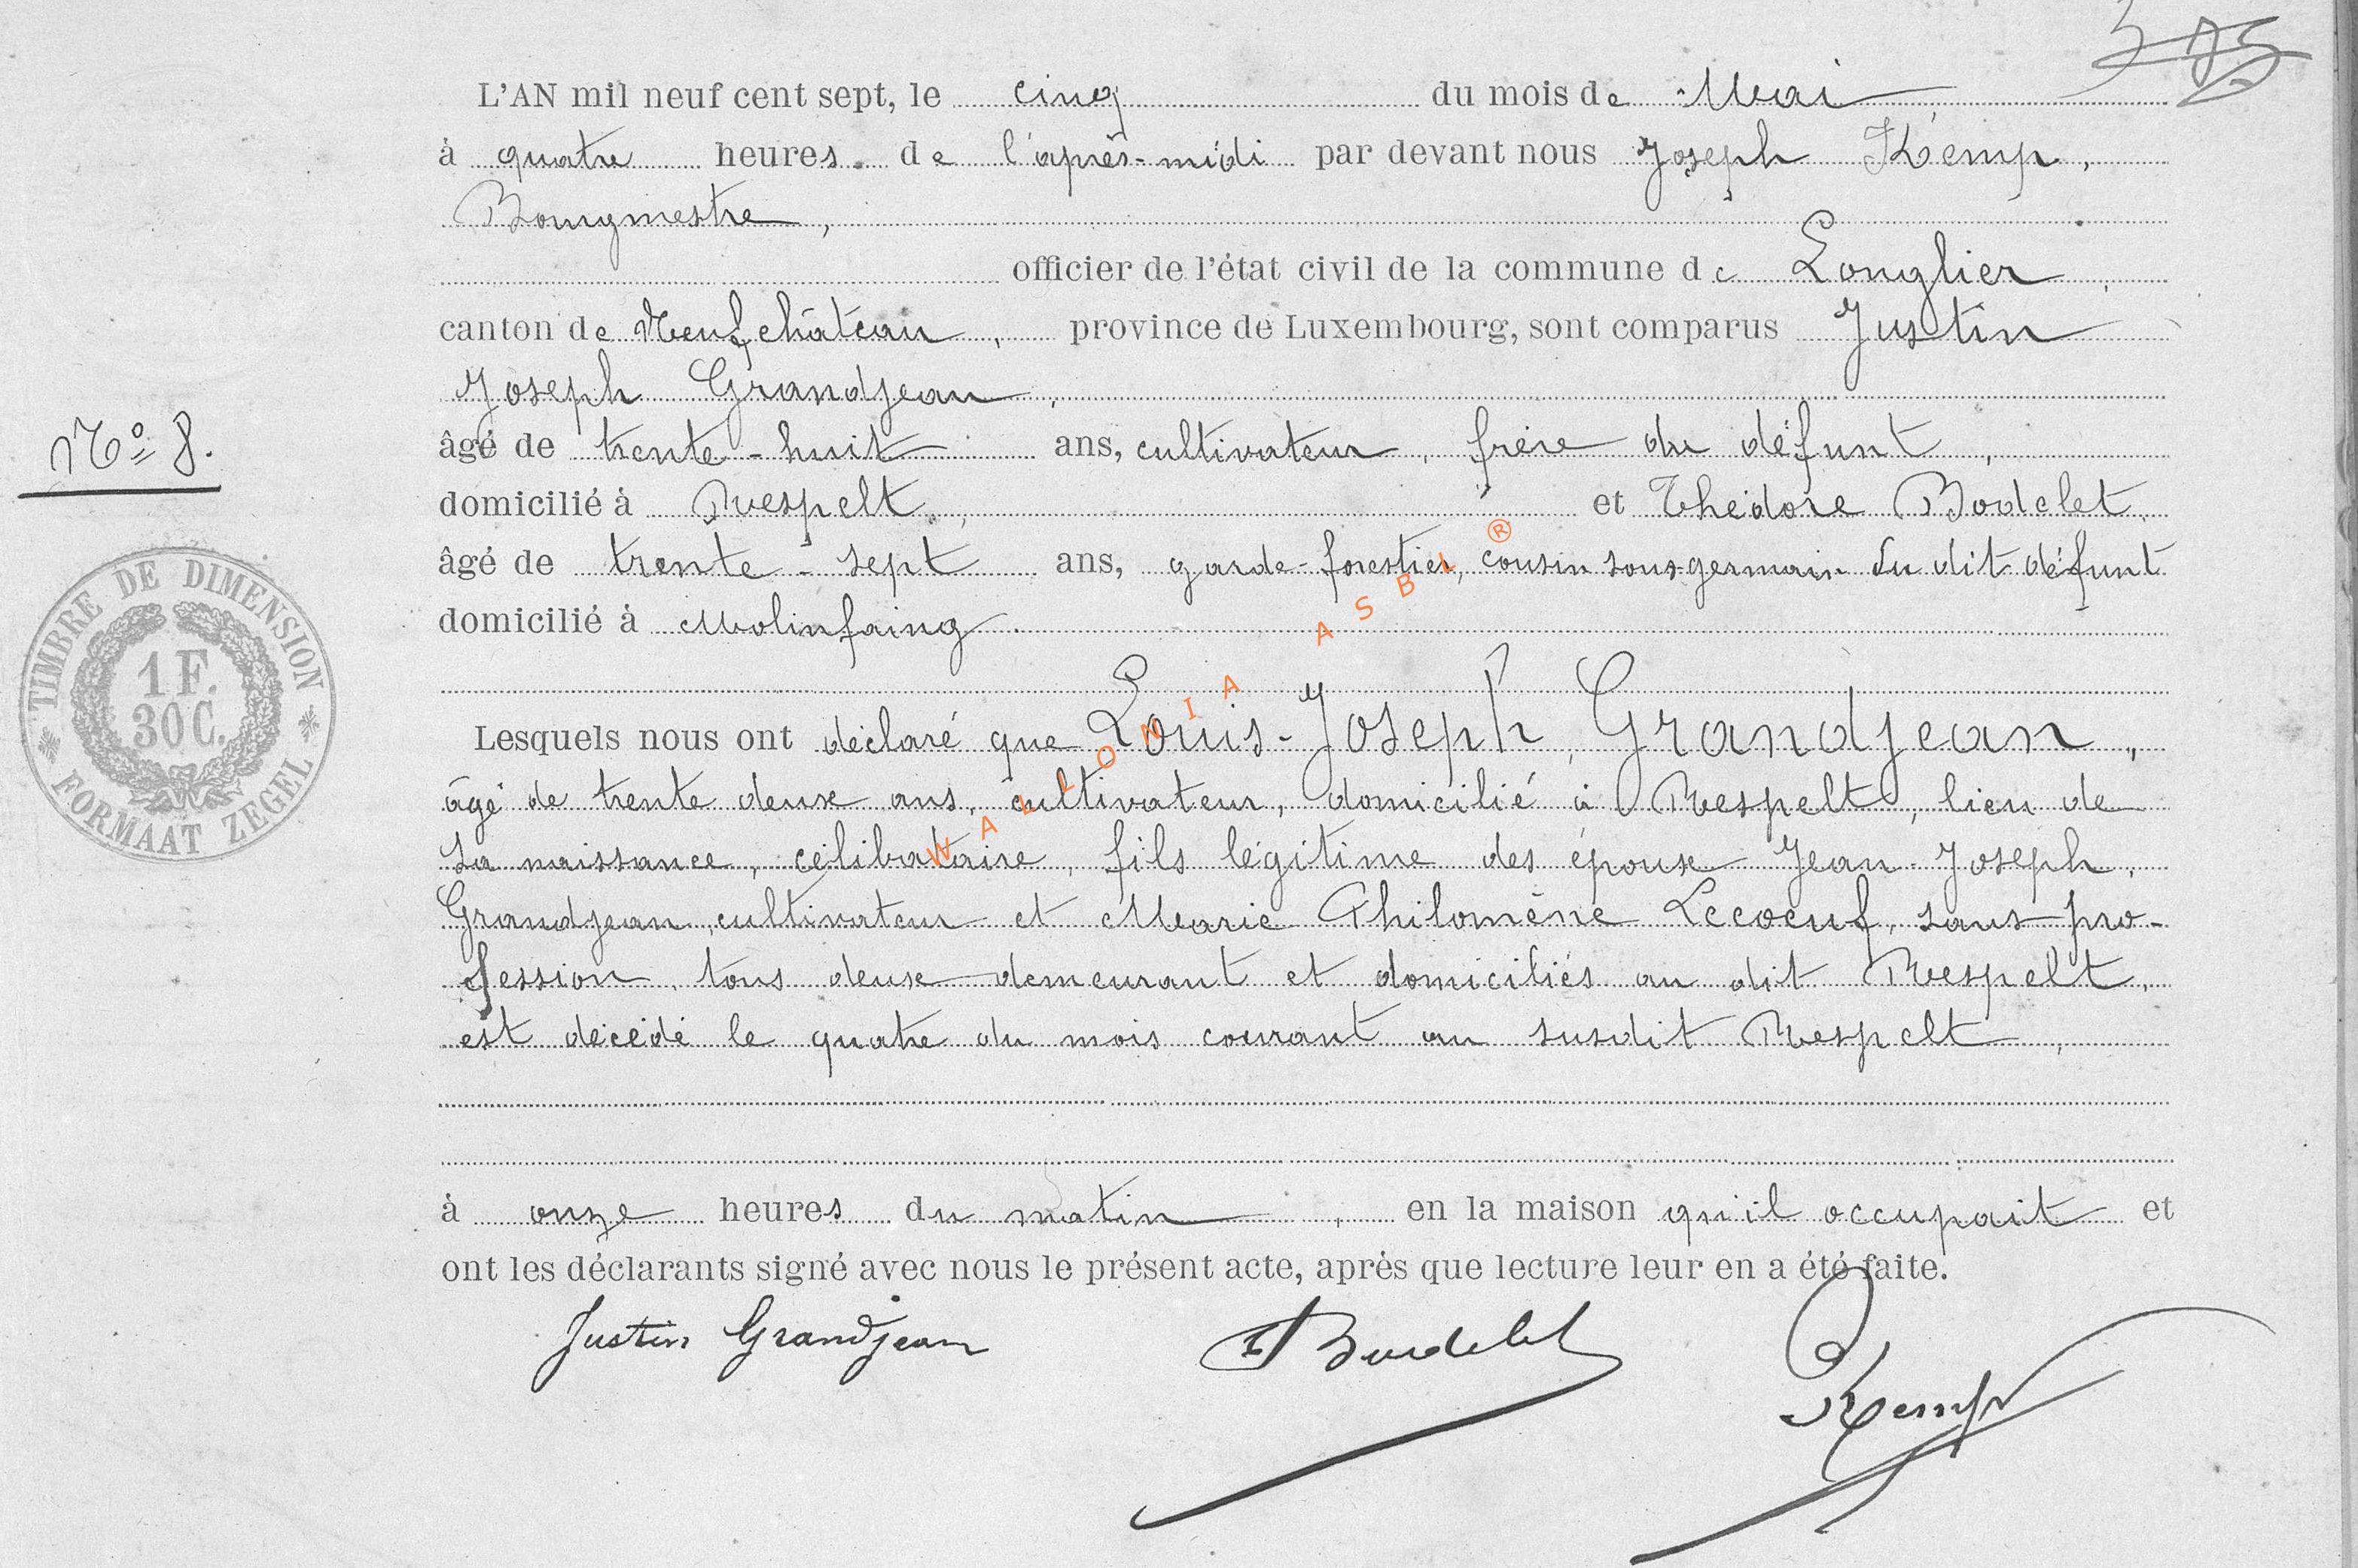 L'AN mil neuf cent sept, le cinq du mois de Mai
à quatre heures de l'après-midi par devant nous Joseph Kemp,
Bourgmestre,
officier de l'état civil de la commune de Longlier,
canton de Neufchâteau, province de Luxembourg, sont comparus Justin
Joseph Grandjean,
âgé de trente-huit ans, cultivateur, frère du défunt,
domicilié à Respelt, et Théodore Bodelet,
âgé de trente-sept ans, garde-forestier, cousin sous-germain du dit défunt
domicilié à Molinfaing.
Lesquels nous ont déclaré que Louis-Joseph, Grandjean,
âgé de trente deux ans, cultivateur, domicilié à Respelt, lieu de
sa naissance, célibataire, fils légitime des époux Jean-Joseph,
Grandjean, cultivateur et Marie Philomène Lecoeuf, sans pro-
fession, tous deux demeurant et domiciliés au dit Respelt,
est décédé le quatre du mois courant au susdit Respelt,
à onze heures du matin, en la maison qu'il occupait et
ont les déclarants signé avec nous le présent acte, après que lecture leur en a été faite.
Justin Grandjean
Bodelet
Kemp
No 8.
TIMBRE DE DIMENSION
1 F.
30 C.
FORMAAT ZEGEL
WALLONIA ASBL ®